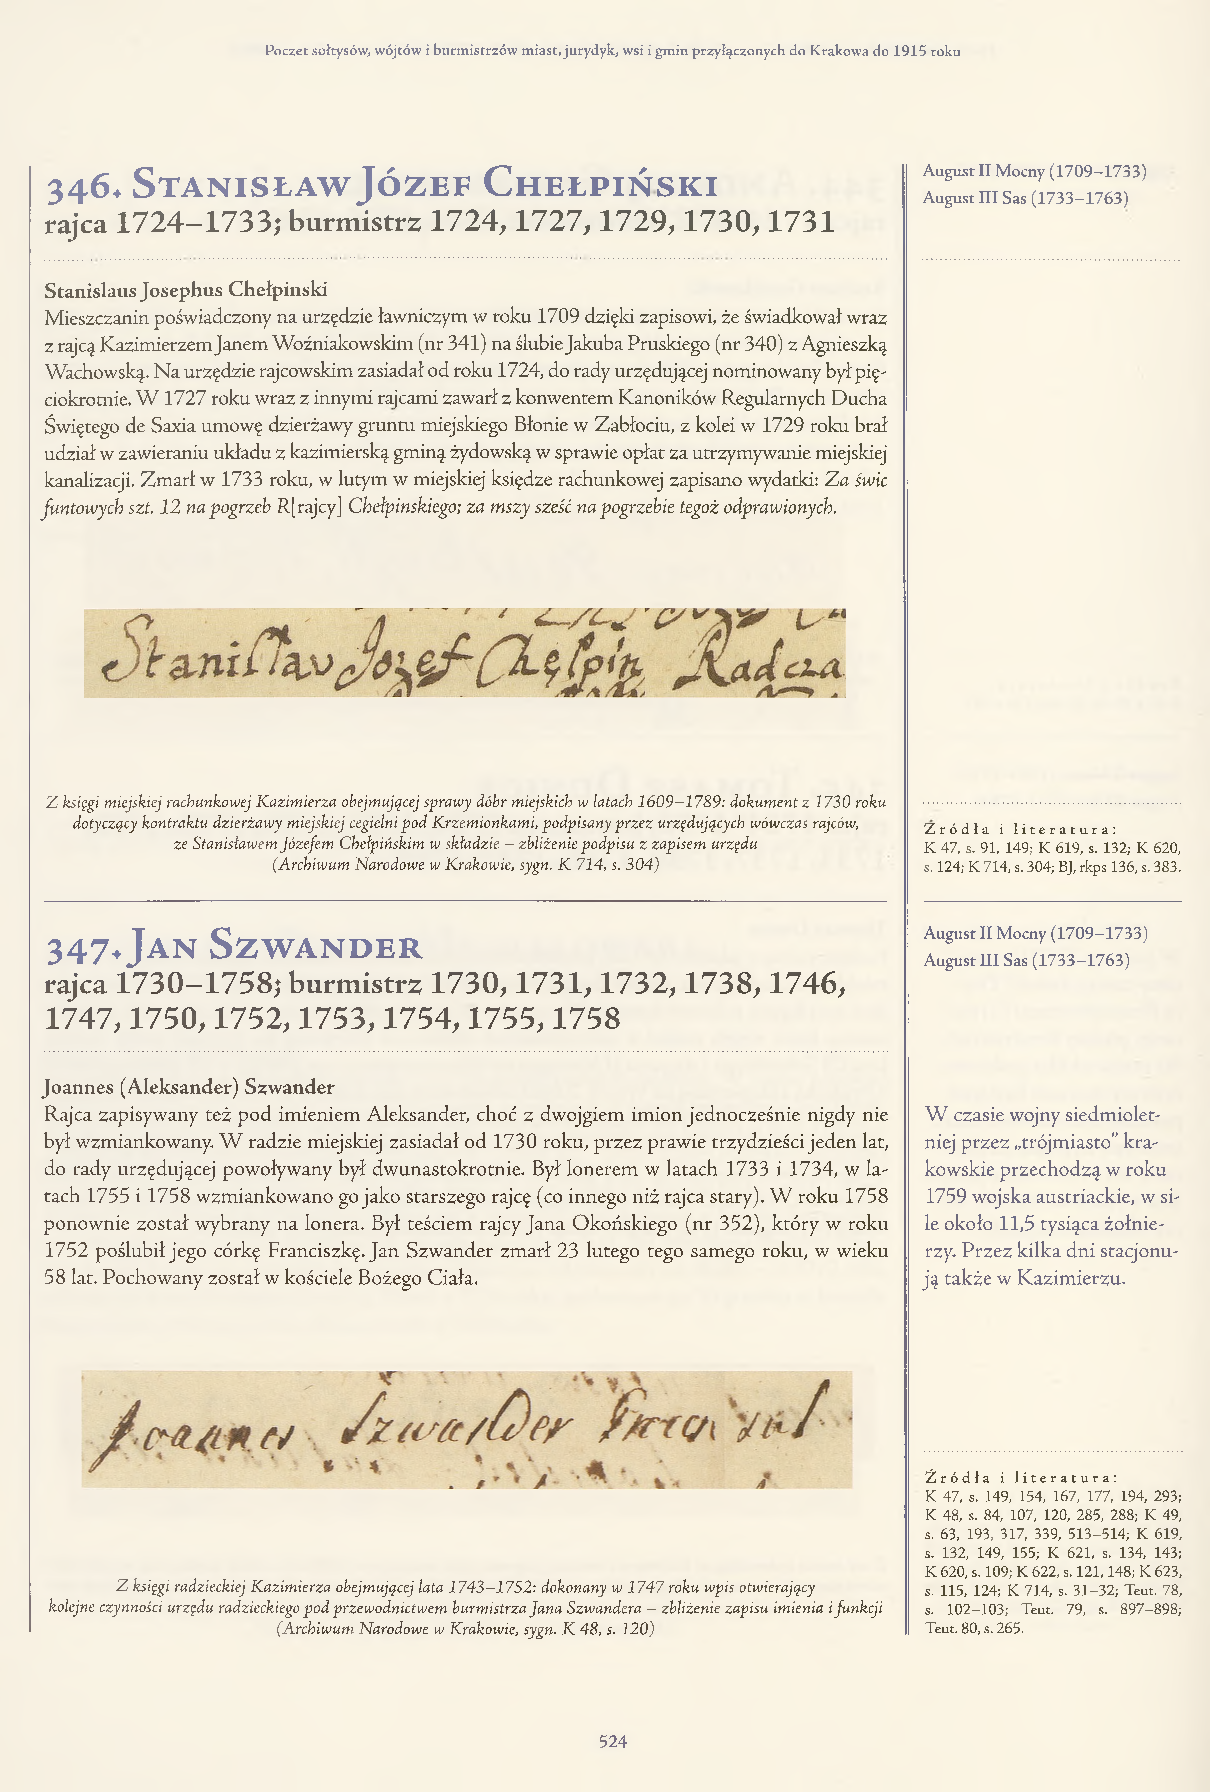 Poczet sołtysów, wójtów i burmistrzów miast, jurydyk, wsi i gmin przyłączonych do Krakowa do 1915 roku
346. Stanisław Józef Chełpiński
rajca 1724–1733; burmistrz 1724, 1727, 1729, 1730, 1731
August II Mocny (1709–1733)
August III Sas (1733–1763)
Stanislaus Josephus Chełpinski
Mieszczanin poświadczony na urzędzie ławniczym w roku 1709 dzięki zapisowi, że świadkował wraz
z rajcą Kazimierzem Janem Woźniakowskim (nr 341) na ślubie Jakuba Pruskiego (nr 340) z Agnieszką
Wachowską. Na urzędzie rajcowskim zasiadał od roku 1724, do rady urzędującej nominowany był pię-
ciokrotnie. W 1727 roku wraz z innymi rajcami zawarł z konwentem Kanoników Regularnych Ducha
Świętego de Saxia umowę dzierżawy gruntu miejskiego Błonie w Zabłociu, z kolei w 1729 roku brał
udział w zawieraniu układu z kazimierską gminą żydowską w sprawie opłat za utrzymywanie miejskiej
kanalizacji. Zmarł w 1733 roku, w lutym w miejskiej księdze rachunkowej zapisano wydatki: Za świc
funtowych szt. 12 na pogrzeb R[rajcy] Chełpinskiego; za mszy sześć na pogrzebie tegoż odprawionych.
Stanisław Jozef Chełpin Radcza
Z księgi miejskiej rachunkowej Kazimierza obejmującej sprawy dóbr miejskich w latach 1609–1789: dokument z 1730 roku
dotyczący kontraktu dzierżawy miejskiej cegielni pod Krzemionkami, podpisany przez urzędujących wówczas rajców,
ze Stanisławem Józefem Chełpińskim w składzie – zbliżenie podpisu z zapisem urzędu
(Archiwum Narodowe w Krakowie, sygn. K 714, s. 304)
Źródła i literatura:
K 47, s. 91, 149; K 619, s. 132; K 620,
s. 124; K 714, s. 304; BJ, rkps 136, s. 383.
347. Jan Szwander
rajca 1730–1758; burmistrz 1730, 1731, 1732, 1738, 1746,
1747, 1750, 1752, 1753, 1754, 1755, 1758
August II Mocny (1709–1733)
August III Sas (1733–1763)
Joannes (Aleksander) Szwander
Rajca zapisywany też pod imieniem Aleksander, choć z dwojgiem imion jednocześnie nigdy nie
był wzmiankowany. W radzie miejskiej zasiadał od 1730 roku, przez prawie trzydzieści jeden lat,
do rady urzędującej powoływany był dwunastokrotnie. Był lonerem w latach 1733 i 1734, w la-
tach 1755 i 1758 wzmiankowano go jako starszego rajcę (co innego niż rajca stary). W roku 1758
ponownie został wybrany na lonera. Był teściem rajcy Jana Okońskiego (nr 352), który w roku
1752 poślubił jego córkę Franciszkę. Jan Szwander zmarł 23 lutego tego samego roku, w wieku
58 lat. Pochowany został w kościele Bożego Ciała.
W czasie wojny siedmiolet-
niej przez „trójmiasto” kra-
kowskie przechodzą w roku
1759 wojska austriackie, w si-
le około 11,5 tysiąca żołnie-
rzy. Przez kilka dni stacjonu-
ją także w Kazimierzu.
Joannes Szwander
Z księgi radzieckiej Kazimierza obejmującej lata 1743–1752: dokonany w 1747 roku wpis otwierający
kolejne czynności urzędu radzieckiego pod przewodnictwem burmistrza Jana Szwandera – zbliżenie zapisu imienia i funkcji
(Archiwum Narodowe w Krakowie, sygn. K 48, s. 120)
Źródła i literatura:
K 47, s. 149, 154, 167, 177, 194, 293;
K 48, s. 84, 107, 120, 285, 288; K 49,
s. 63, 193, 317, 339, 513–514; K 619,
s. 132, 149, 155; K 621, s. 134, 143;
K 620, s. 109; K 622, s. 121, 148; K 623,
s. 115, 124; K 714, s. 31–32; Teut. 78,
s. 102–103; Teut. 79, s. 897–898;
Teut. 80, s. 265.
524